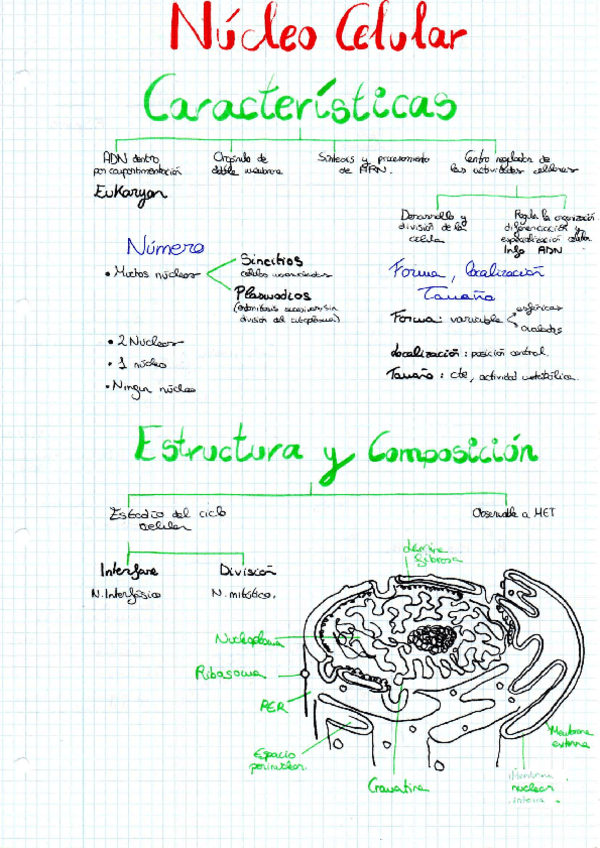 Núcleo Celular
Características
ADN dentro
por compartimentación
Eukaryon
Orgánulo de
doble membrana
Síntesis y procesamiento
de ARN.
Centro regulador de
las actividades celulares
Desarrollo y
división de la
célula
Regula la organización,
diferenciación y
especialización celular.
Info ADN
Número
• Muchos núcleos
Sincitios
células
Plasmodios
(endomitosis sucesivas sin
división del citoplasma)
• 2 Nucleos
• 1 núcleo
• Ningun núcleo
Forma, localización
Tamaño
Forma: variable
esféricas
ovaladas
Localización: posición central.
Tamaño: cte, actividad metabólica.
Estructura y Composición
Estadio del ciclo
celular
Observable a MET
Interfase
N. Interfásico
División
N. mitótico.
Lámina
fibrosa
Nucleoplasma
Ribosoma
RER
Espacio
perinuclear.
Cromatina
Membrana
externa
Membrana
nuclear
interna.